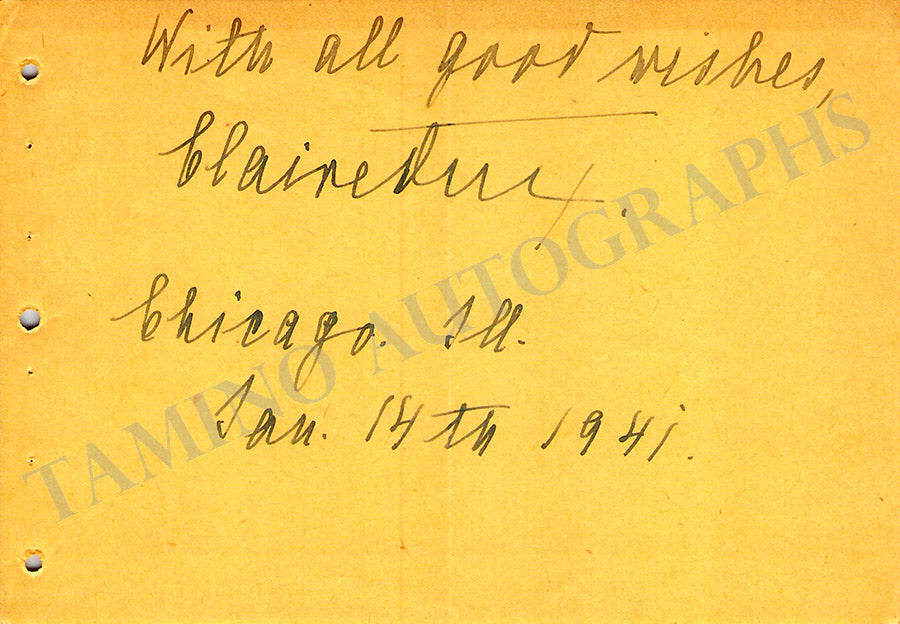 With all good wishes,
Claire Dux.
Chicago. Ill.
Jan. 14th 1941.
TAMINO AUTOGRAPHS